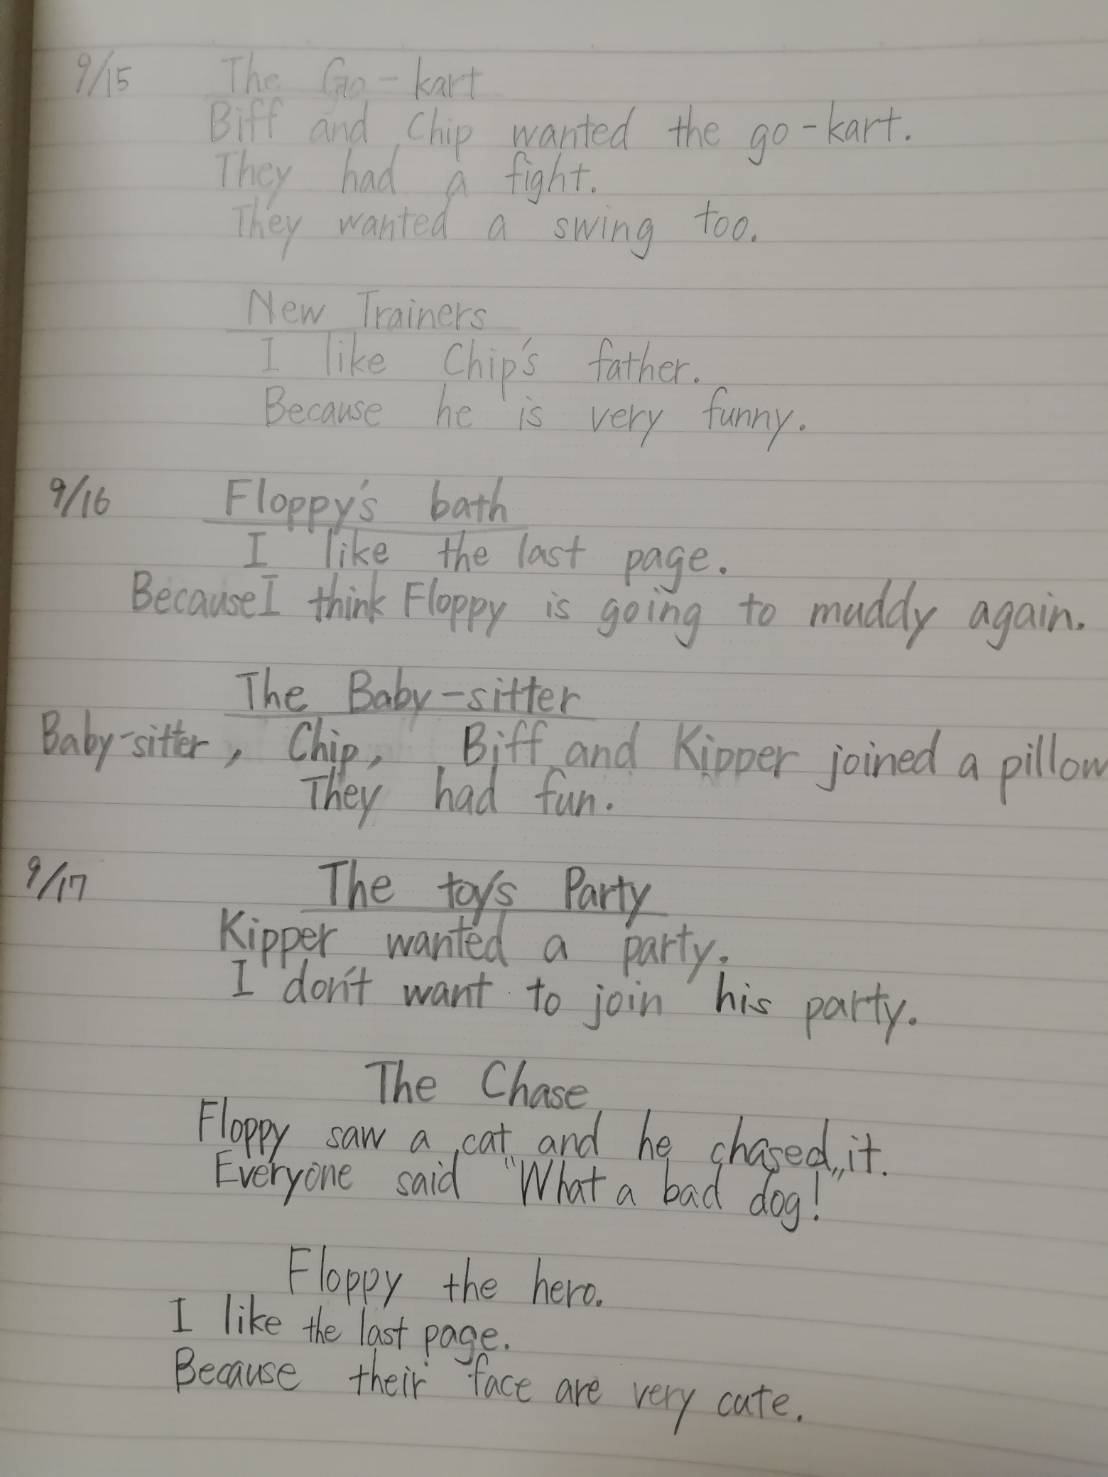 9/15 The Go-kart
Biff and Chip wanted the go-kart.
They had a fight.
They wanted a swing too.
New Trainers
I like Chip's father.
Because he is very funny.
9/16 Floppy's bath
I like the last page.
Because I think Floppy is going to muddy again.
The Baby-sitter
Baby-sitter, Chip, Biff and Kipper joined a pillow
They had fun.
9/17 The toys Party
Kipper wanted a party.
I don't want to join his party.
The Chase
Floppy saw a cat and he chased it.
Everyone said "What a bad dog!"
Floppy the hero.
I like the last page.
Because their face are very cute.